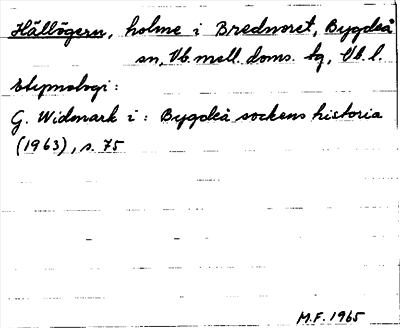 Hällögern, holme i Bredvoret, Bygdeå
sn, Vb. mell. doms. tg, Vb. l.
Etymologi:
G. Widmark i: Bygdeå sockens historia
(1963), s. 75
M.F. 1965